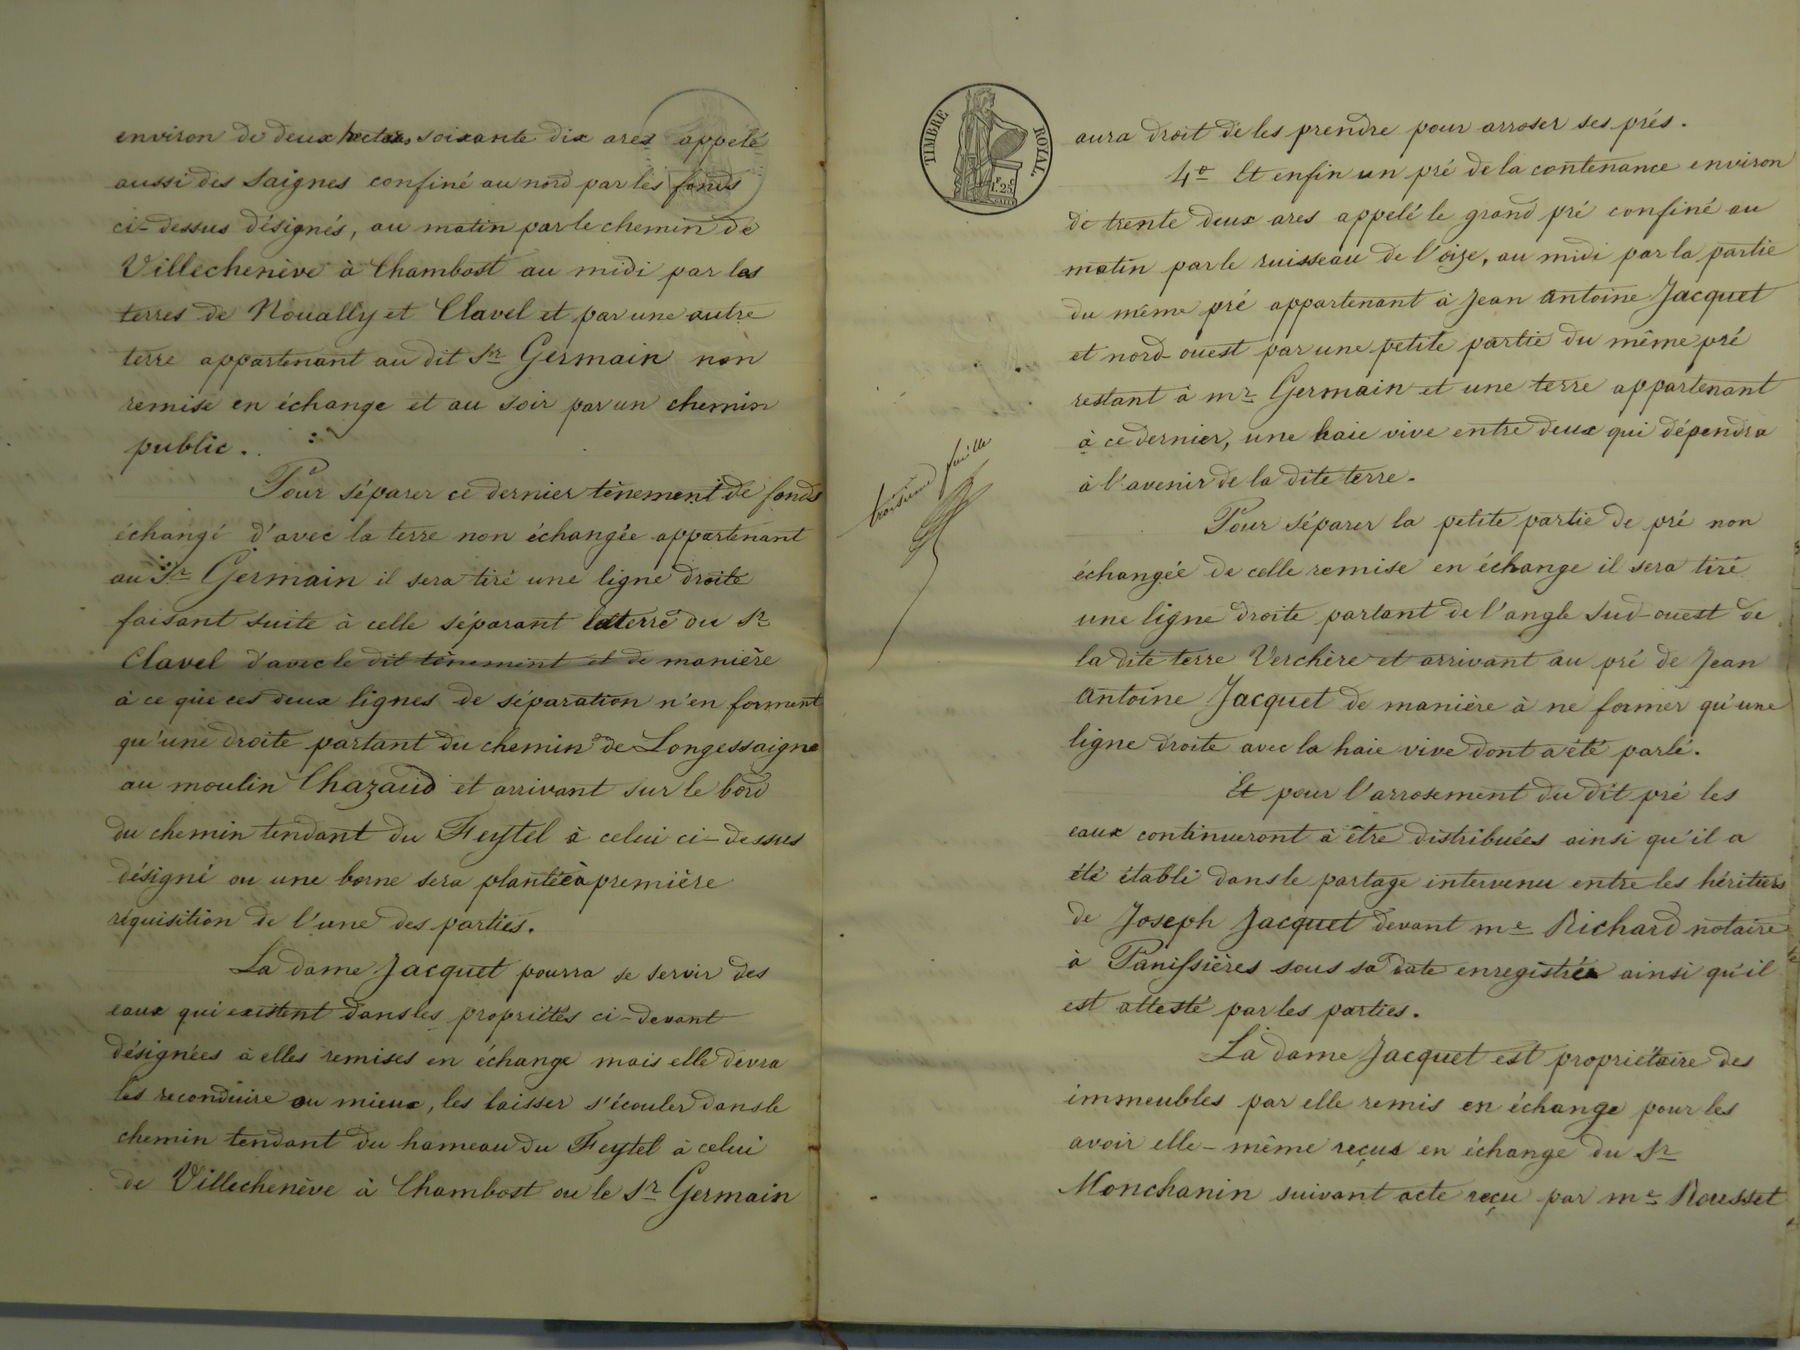 environ de deux hectares soixante dix ares appelé
aussi des Saignes confiné au nord par les fonds
ci-dessus désignés, au matin par le chemin de
Villechenève à Chambost au midi par les
terres de Noually et Clavel et par une autre
terre appartenant au dit Sr Germain non
remise en échange et au soir par un chemin
public.
Pour séparer ce dernier tènement de fonds
échangé d'avec la terre non échangée appartenant
au Sr Germain il sera tiré une ligne droite
faisant suite à celle séparant la terre du Sr
Clavel d'avec le dit tènement et de manière
à ce que ces deux lignes de séparation n'en forment
qu'une droite partant du chemin de Longessaigne
au moulin Chazaud et arrivant sur le bord
du chemin tendant du Feytel à celui ci-dessus
désigné ou une borne sera plantée à première
réquisition de l'une des parties.
La dame Jacquet pourra se servir des
eaux qui existent dans les propriétés ci-devant
désignées à elles remises en échange mais elle devra
les reconduire ou mieux, les laisser s'écouler dans le
chemin tendant du hameau du Feytel à celui
de Villechenève à Chambost ou le Sr Germain
TIMBRE ROYAL.
1F. 25c
troisième feuille
aura droit de les prendre pour arroser ses prés.
4o Et enfin un pré de la contenance environ
de trente deux ares appelé le grand pré confiné au
matin par le ruisseau de l'oise, au midi par la partie
du même pré appartenant à Jean Antoine Jacquet
et nord-ouest par une petite partie du même pré
restant à mr Germain et une terre appartenant
à ce dernier, une haie vive entre deux qui dépendra
à l'avenir de la dite terre.
Pour séparer la petite partie de pré non
échangée de celle remise en échange il sera tiré
une ligne droite partant de l'angle sud-ouest de
la dite terre Verchère et arrivant au pré de Jean
Antoine Jacquet de manière à ne former qu'une
ligne droite avec la haie vive dont a été parlé.
Et pour l'arrosement du dit pré les
eaux continueront à être distribuées ainsi qu'il a
été établi dans le partage intervenu entre les héritiers
de Joseph Jacquet devant me Richard notaire
à Panissières sous sa date enregistrée ainsi qu'il
est attesté par les parties.
La dame Jacquet est propriétaire des
immeubles par elle remis en échange pour les
avoir elle-même reçus en échange du Sr
Monchanin suivant acte reçu par me Rousset